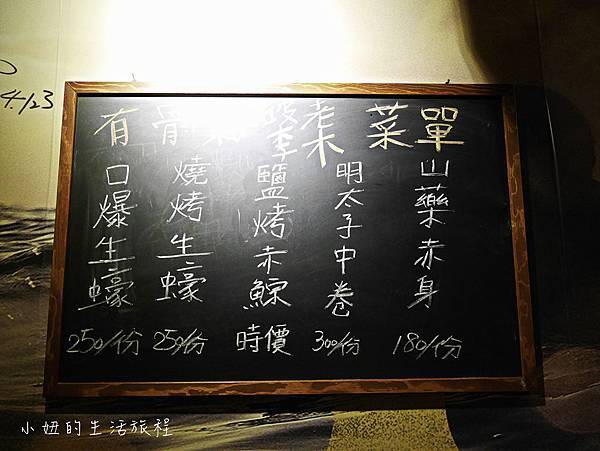 4.123
有骨 季 老木 菜單
山藥赤身
180/份
明太子中卷
300/份
鹽烤赤鯮
時價
燒烤生蠔
250/份
口爆生蠔
250/份
小妞的生活旅程